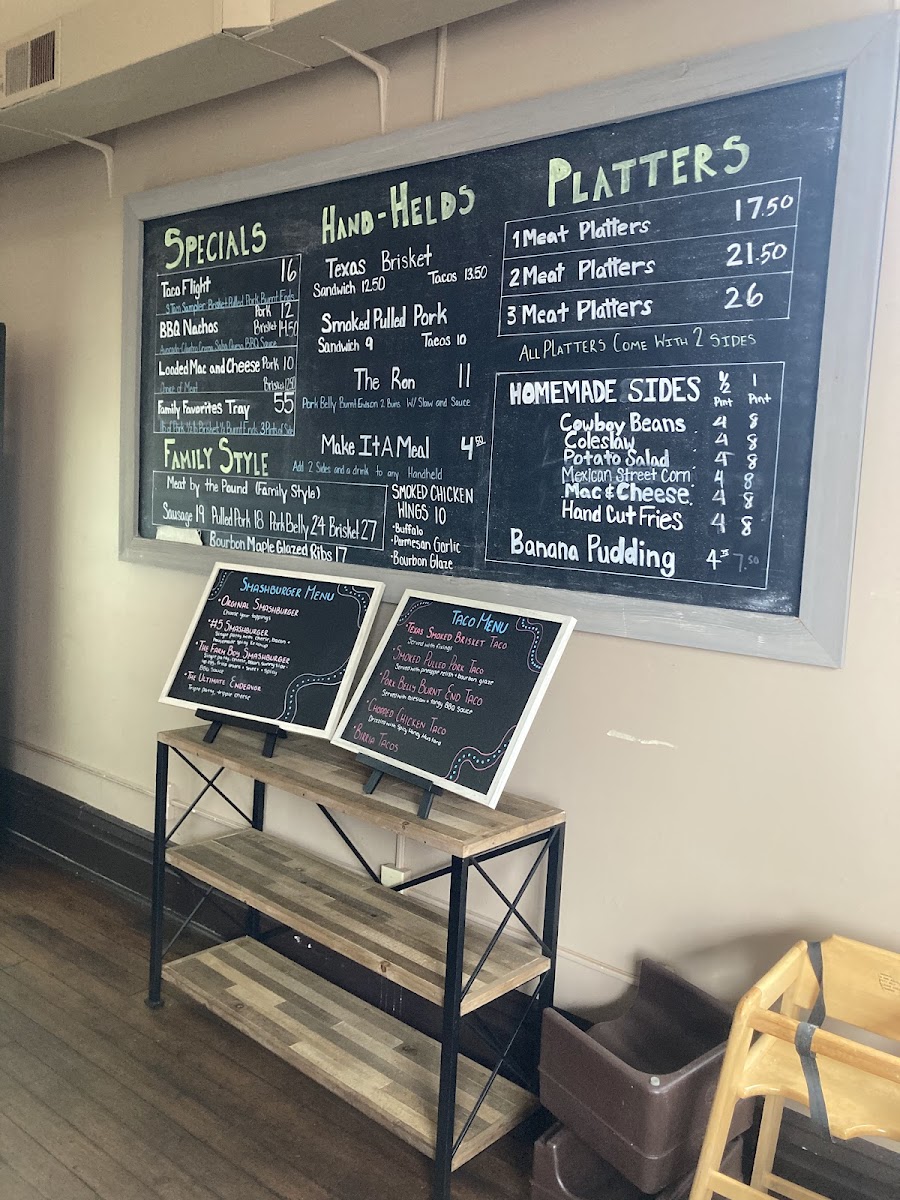 SPECIALS
Taco Flight 16
3 Taco Sampler Brisket Pulled Pork Burnt Ends
BBQ Nachos Pork 12
Brisket 14.50
Avocado Cilantro Crema Salsa Queso BBQ Sauce
Loaded Mac and Cheese Pork 10
Choice of Meat
Family Favorites Tray 55
FAMILY STYLE
Meat by the Pound (Family Style)
Sausage 19 Pulled Pork 18 Pork Belly 24 Brisket 27
Bourbon Maple Glazed Ribs 17
HAND-HELDS
Texas Brisket
Sandwich 12.50 Tacos 13.50
Smoked Pulled Pork
Sandwich 9 Tacos 10
The Ron 11
Pork Belly Burnt Ends on 2 Buns W/ Slaw and Sauce
Make It A Meal 4.50
Add 2 Sides and a drink to any Handheld
SMOKED CHICKEN
WINGS 10
•Buffalo
•Parmesan Garlic
•Bourbon Glaze
PLATTERS
1 Meat Platters 17.50
2 Meat Platters 21.50
3 Meat Platters 26
ALL PLATTERS COME WITH 2 SIDES
HOMEMADE SIDES ½ Pint 1 Pint
Cowboy Beans 4 8
Coleslaw 4 8
Potato Salad 4 8
Mexican Street Corn 4 8
Mac & Cheese 4 8
Hand Cut Fries 4 8
Banana Pudding 7.50
SMASHBURGER MENU
•ORIGINAL SMASHBURGER
Choose your toppings
•#5 SMASHBURGER
Single patty with cheese, bacon +
•THE FARM BOY SMASHBURGER
BBQ sauce
•THE ULTIMATE ENDEAVOR
Triple patty, tripple cheese
TACO MENU
•TEXAS SMOKED BRISKET TACO
Served with fixings
•SMOKED PULLED PORK TACO
Served with pineapple relish + bourbon glaze
•PORK BELLY BURNT END TACO
Served with coleslaw + tangy BBQ sauce
•CHOPPED CHICKEN TACO
Drizzled with Spicy Honey Mustard
•BIRRIA TACOS